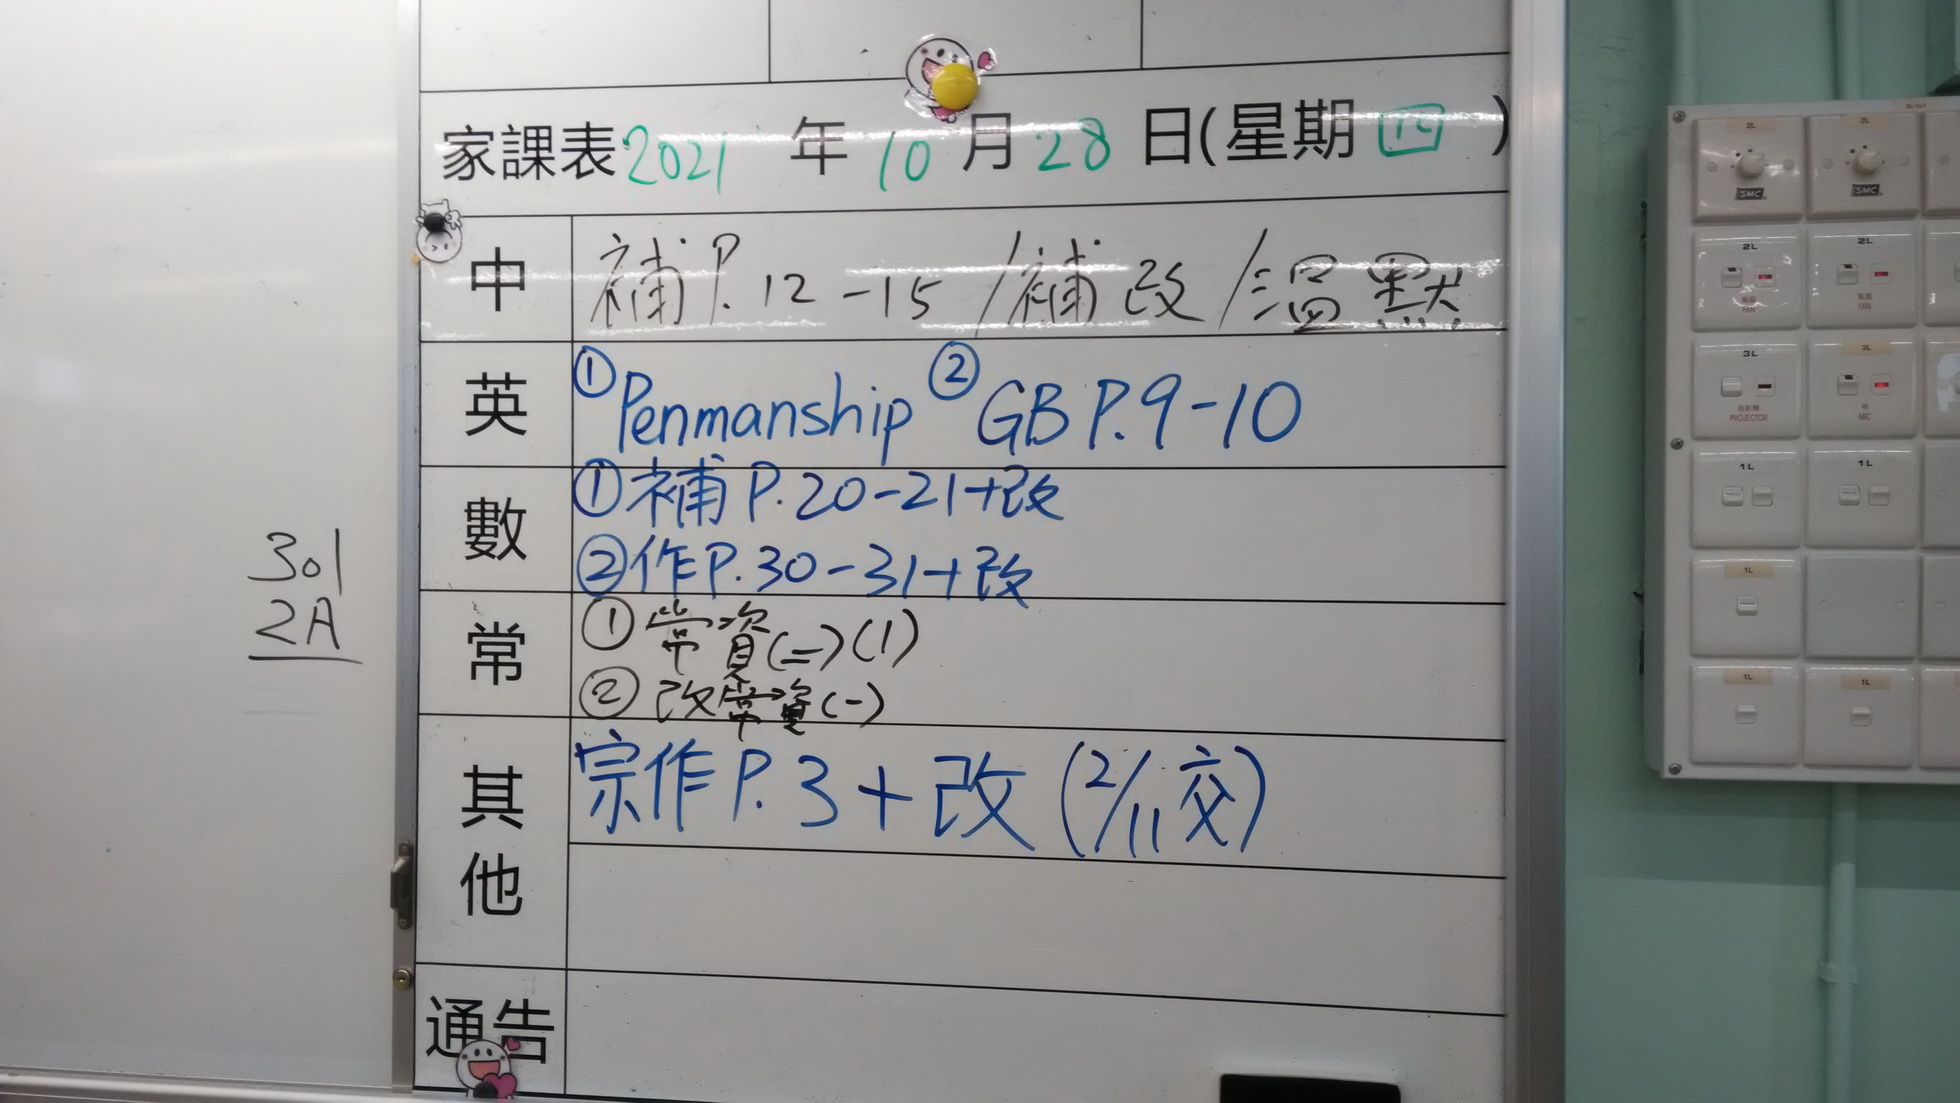 家課表 2021 年 10 月 28 日(星期四)
中 補 P. 12-15 /補改/温默
英 ①Penmanship ②GB P.9-10
數 ①補 P.20-21+改
②作 P.30-31+改
常 ①常資(二)(1)
②改常資(一)
其他 宗作 P.3+改 (2/11交)
通告
301
2A
2L
2L
SMC
SMC
2L
2L
風扇
FAN
風扇
FAN
3L
3L
投影機
PROJECTOR
咪
MIC
1L
1L
1L
1L
1L